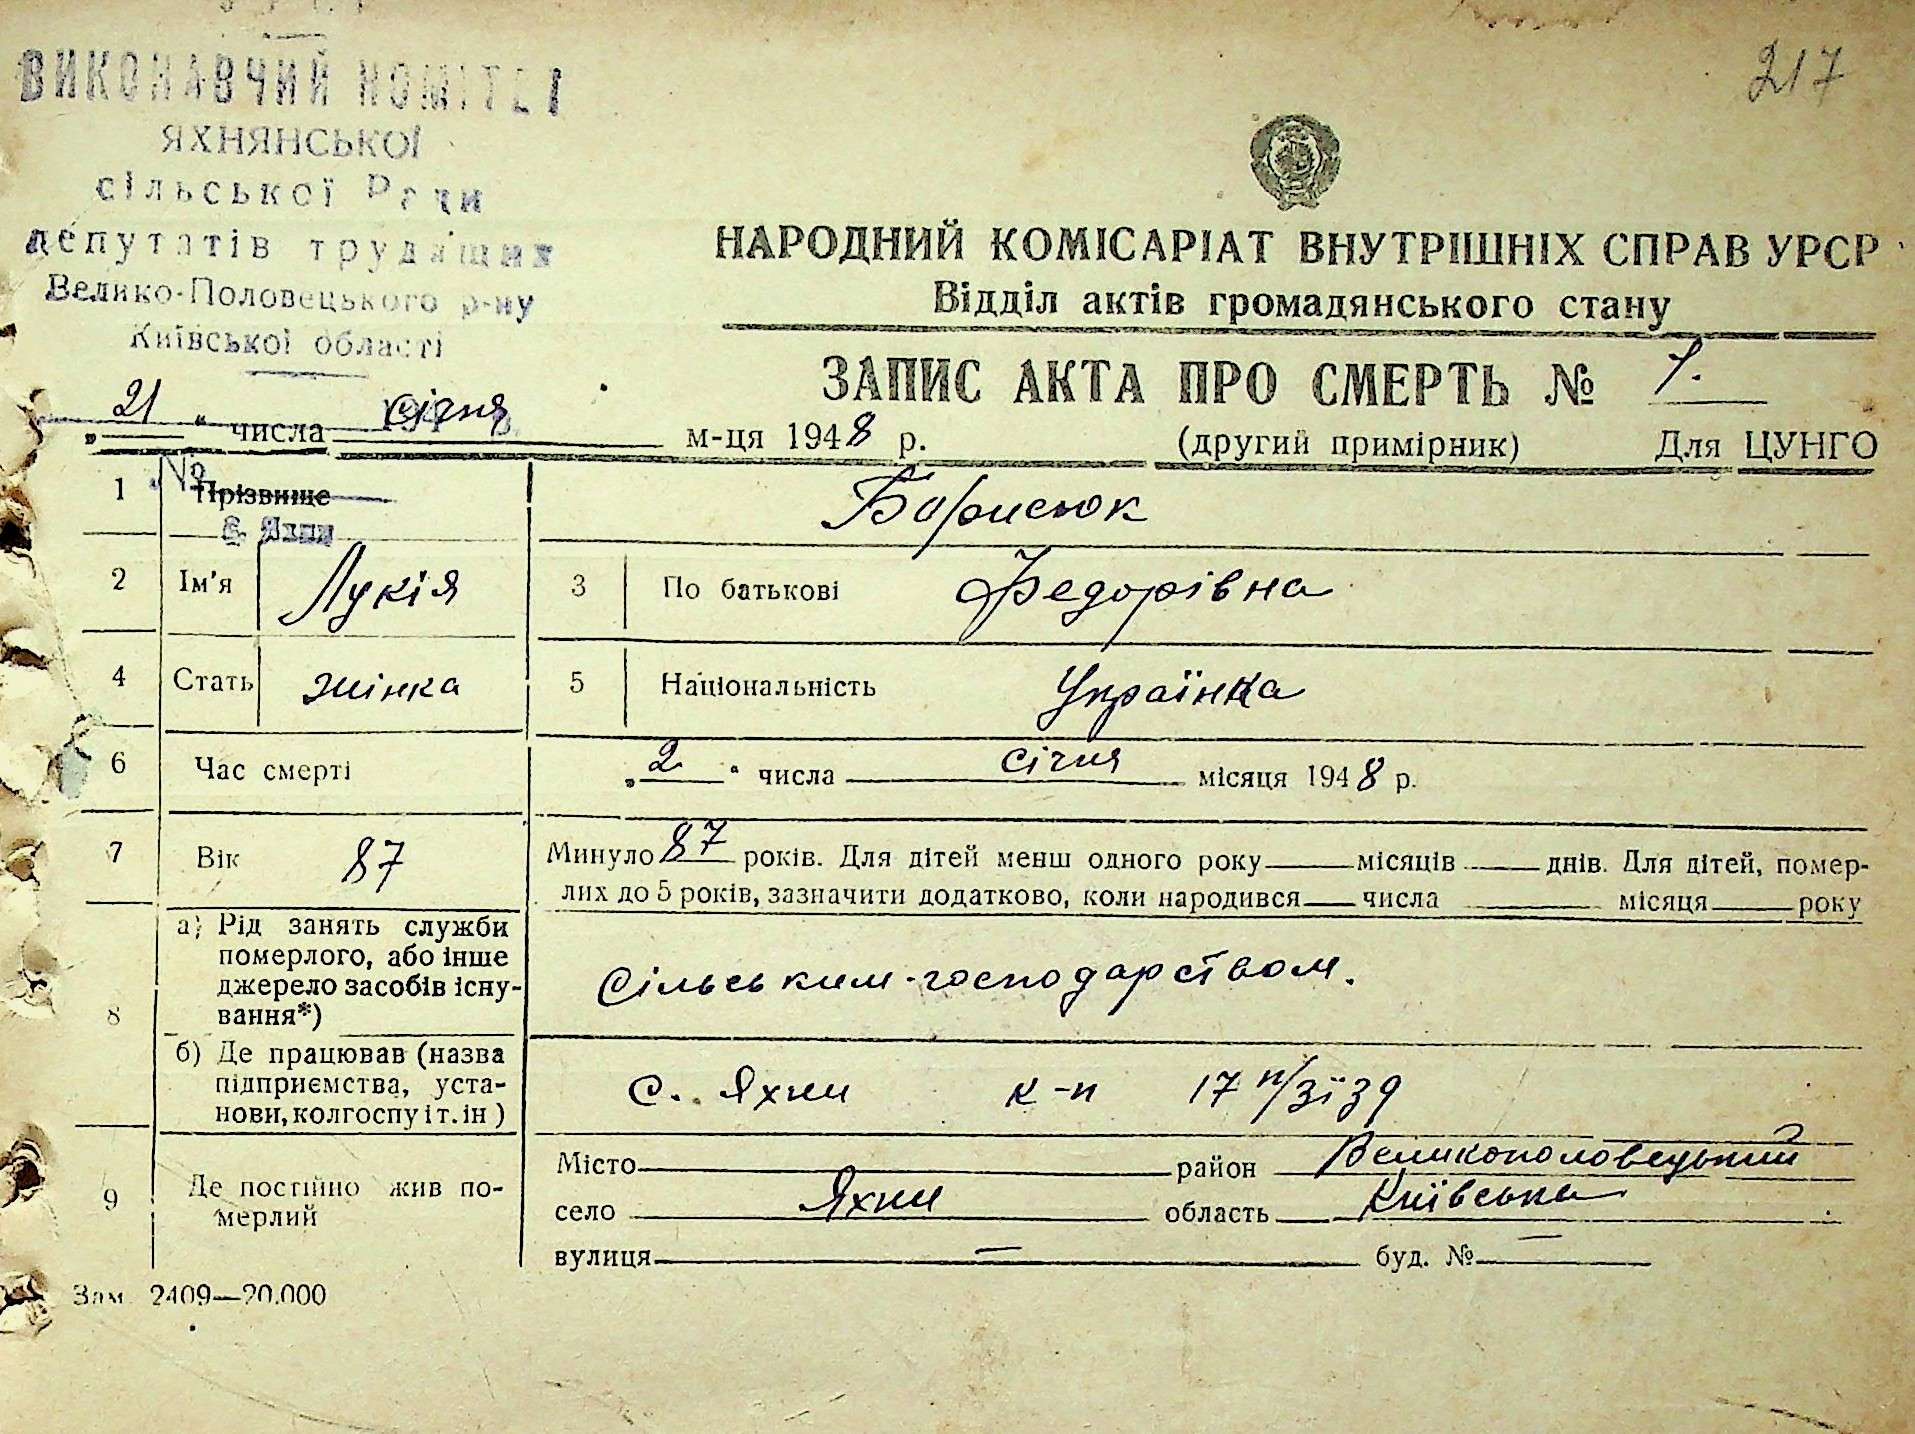 217
ВИКОНАВЧИЙ КОМІТЕТ
ЯХНЯНСЬКОЇ
сільської Ради
депутатів трудящих
Велико-Половецького р-ну
Київської області
НАРОДНИЙ КОМІСАРІАТ ВНУТРІШНІХ СПРАВ УРСР
Відділ актів громадянського стану
ЗАПИС АКТА ПРО СМЕРТЬ №
„21“ числа січня м-ця 1948 р. (другий примірник) Для ЦУНГО
№
1 Прізвище Борисюк
с. Яхни
2 Ім'я Лукія 3 По батькові Федорівна
4 Стать жінка 5 Національність Українка
6 Час смерті „2“ числа січня місяця 1948 р.
7 Вік 87 Минуло 87 років. Для дітей менш одного року місяців днів. Для дітей, помер-
лих до 5 років, зазначити додатково, коли народився числа місяця року
8 а) Рід занять служби
померлого, або інше
джерело засобів існу-
вання*)
Сільським-господарством.
б) Де працював (назва
підприємства, уста-
нови, колгоспу і т. ін)
с. Яхни к-п 17 п/зїзд
9 Де постійно жив по-
мерлий
Місто район Великополовецький
село Яхни область Київська
вулиця — буд. № —
Зам. 2409—20.000